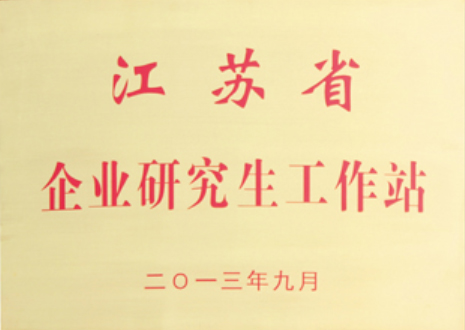 江苏省
企业研究生工作站
二〇一三年九月